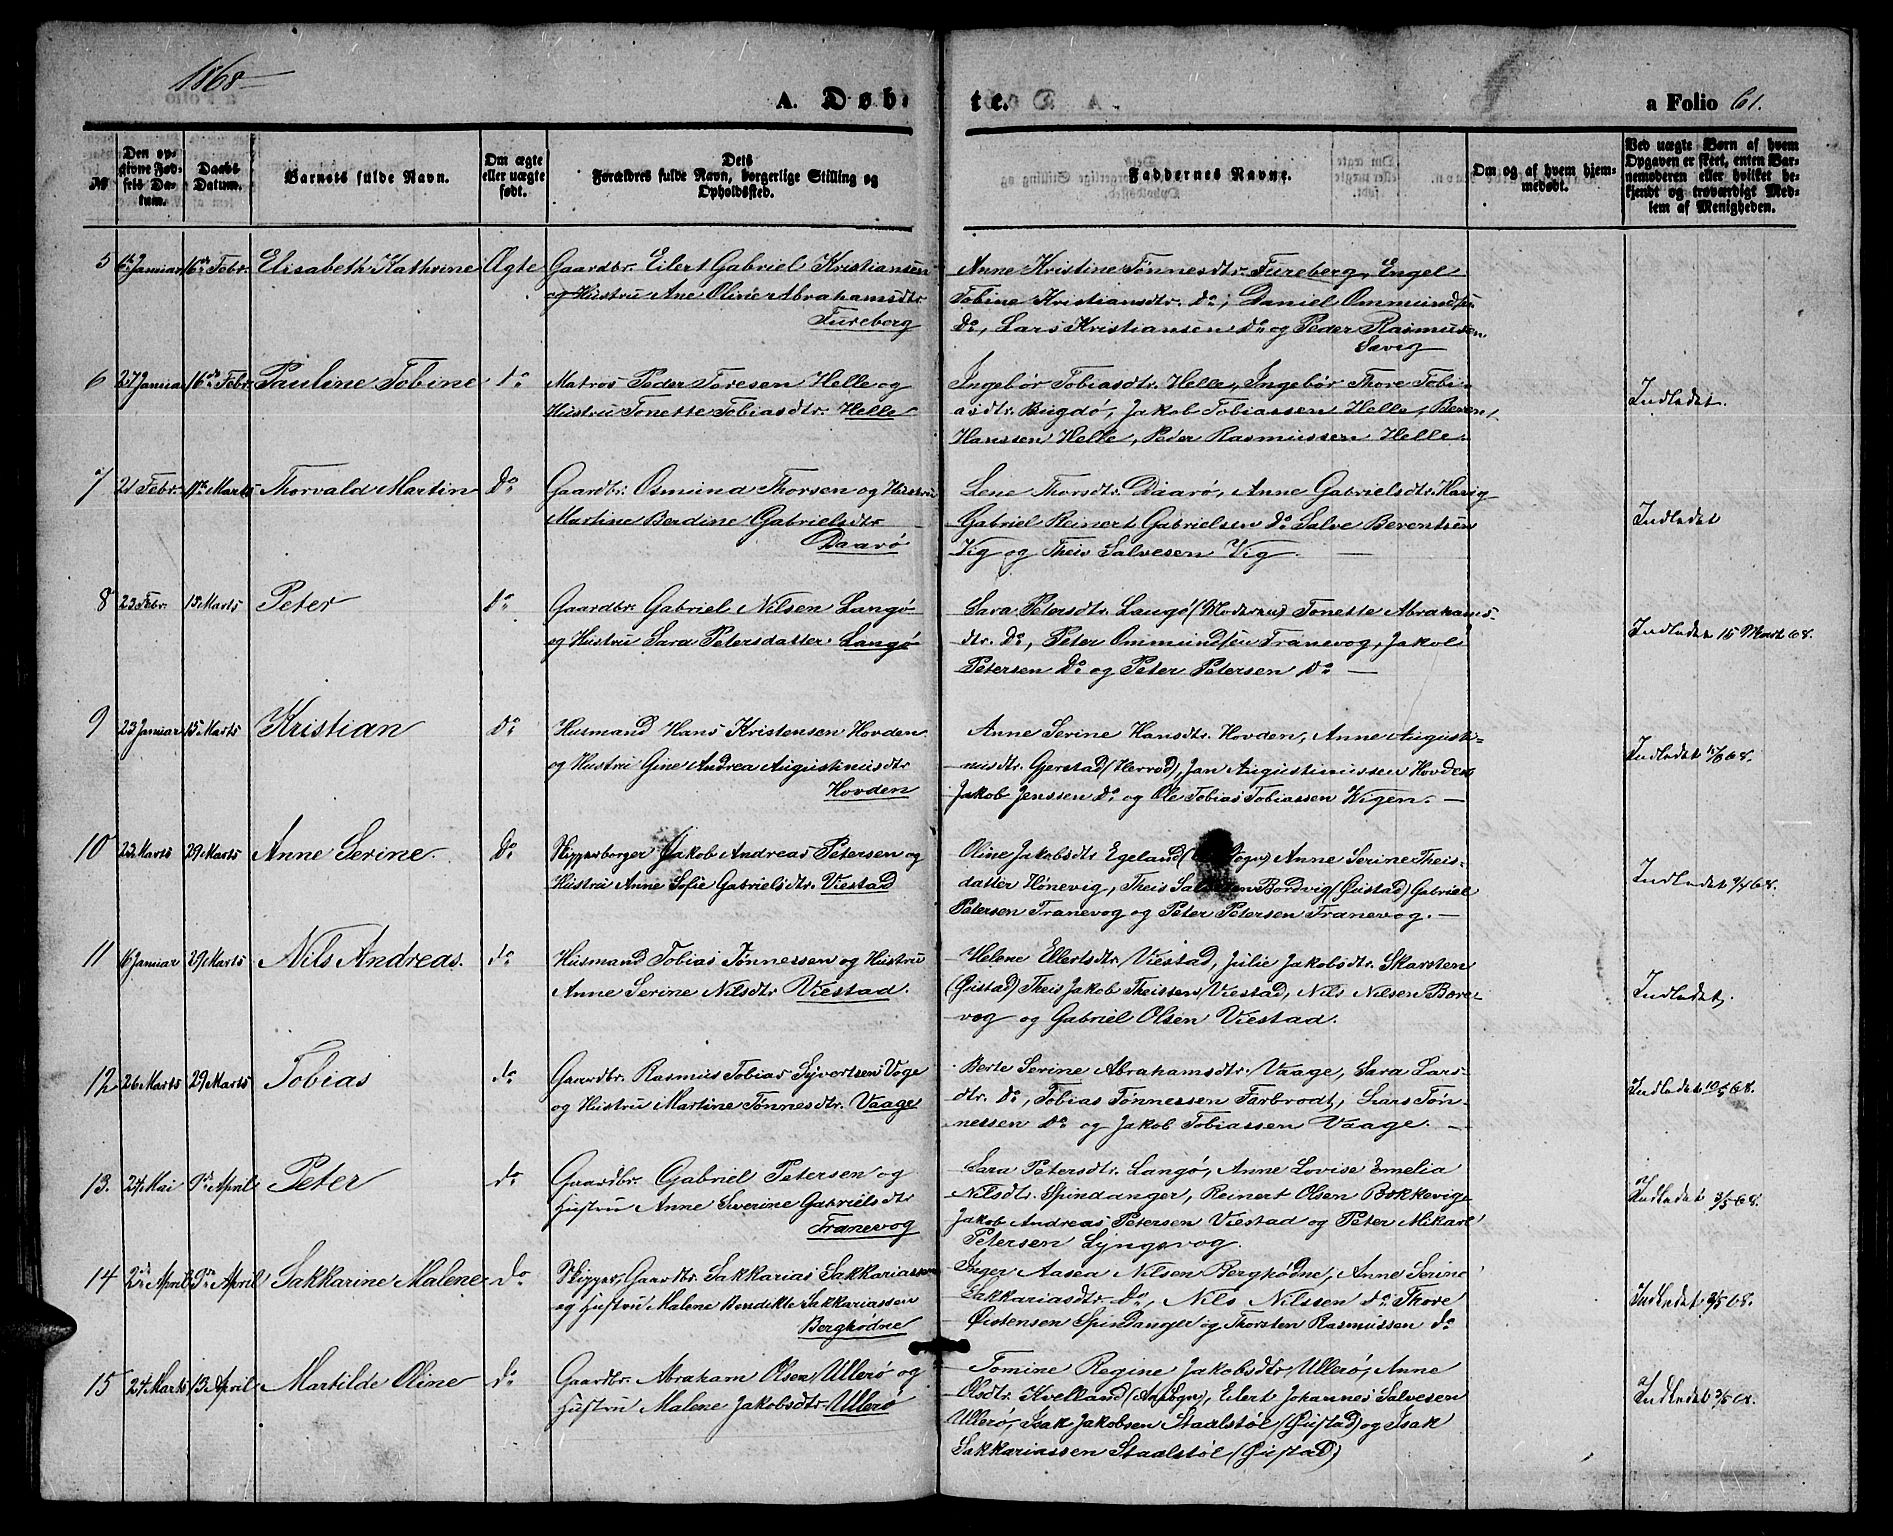 1868
A. Døb-
te.
a Folio 61.
№
Den op-
givne Fød-
sels Da-
tum.
Daabs
Datum.
Barnets fulde Navn.
Om ægte
eller uægte
født.
Dets
Forældres fulde Navn, borgerlige Stilling og
Opholdssted.
Faddernes Navne.
Om og af hvem hjem-
medøbt.
Ved uægte Børn af hvem
Opgaven er skeet, enten Bar-
nemoderen eller hvilket be-
kjendt og troværdigt Med-
lem af Menigheden.
5 6te Januar 16de Febr. Elisabeth Kathrine Ægte Gaardbr. Eilert Gabriel Kristiansen
og Hustru Ane Oline Abrahamsdtr
Fureberg
Anne Kristine Tønnesdtr. Fureberg, Engel
Tobine Kristiansdtr. do, Daniel Ommundsen
do, Lars Kristiansen do og Peder Rasmusen
Savig
6 27 Januar 16de Febr. Pauline Tobine do Matros Peder Toresen Helle og
Hustru Tonette Tobiasdtr. Helle
Ingebør Tobiasdtr. Helle, Ingebør Thore Tobi-
asdtr. Bugdø, Jakob Tobiassen Helle, Bernt
Hanssen Helle, Peder Rasmussen Helle.
Indledet.
7 21 Febr. 11te Marts Thorvald Martin do Gaardbr. Osmund Thorsen og Hustru
Martine Berdine Gabrielsdtr
Daarø
Lene Thorsdtr. Daarø, Anne Gabrielsdtr. Havig
Gabriel Reinert Gabrielsen do Salve Berentsen
Vig og Theis Salvesen Vig.
Indledet
8 23 Febr. 15 Marts Peter do Gaardbr. Gabriel Nilsen Langø
og Hustru Sara Petersdatter. Langø
Sara Petersdtr. Langø (Moderen) Tonette Abrahams-
dtr. do, Peter Ommundsen Franevog, Jakob
Petersen do og Peter Petersen do
Indledet 15 Marts 68.
9 23 Januar 15 Marts Kristian do Husmand Hans Kristensen Hovden
og Hustru Gine Andrea Augustinusdtr
Hovden
Anne Serine Hansdtr. Hovden, Anne Augusti-
nusdtr. Gjerstad (Herrød), Jan Augustinussen Hovden
Jakob Jenssen do og Ole Tobias Tobiassen Vigen.
Indledet 68.
10 22 Marts 29 Marts Anne Serine. do Skipperborger Jakob Andreas Petersen og
Hustru Anne Sofie Gabrielsdtr. Viestad
Oline Jakobsdtr Egeland Anne Serine Theis-
datter Hønevig, Theis Bordvig (Øistad) Gabriel
Petersen Franevog og Peter Petersen Franevog.
Indledet 9/4 68.
11 6 Januar 29 Marts Nils Andreas. do Husmand Tobias Tønnessen og Hustru
Anne Serine Nilsdtr Viestad.
Helene Ellertsdtr. Viestad, Julie Jakobsdtr. Skarsten
(Øistad) Theis Jakob Theissen Viestad, Nils Nilsen Bore-
vog og Gabriel Olsen Viestad.
Indledet.
12 26 Marts 29 Marts Tobias do Gaardbr. Rasmus Tobias Syvertsen Voge
og Hustru Martine Tønnesdtr. Vaage
Berte Serine Abrahamsdtr. Vaage, Sara Lars-
dtr. do, Tobias Tønnessen Farbrodt, Lars Tøn-
nessen do og Jakob Tobiassen Vaage.
Indledet 10/5 68.
13. 24 Mai 9de April Peter do Gaardbr. Gabriel Petersen og
Hustru Anne Severine Gabrielsdtr
Franevog
Sara Petersdtr. Langø, Anne Lovise Emelia
Nilsdtr. Spindanger, Reinert Olsen Bøkkevig
Jakob Andreas Petersen Viestad og Peter Mikael
Petersen Lyngsvog.
Indledet 3/5 68.
14 2den April 9de April Sakkarine Malene do Skipper, Gaardbr. Sakkarias Sakkariassen
og Hustru Malene Bendikte Sakkariassen
Berghodne
Inger Aasea Nilsen Berghødne, Anne Serine
Sakkariasdtr. do, Nils Nilssen do Thore
Øistensen Spindanger og Thorsten Rasmussen do
Indledet 3/5 68.
15 24 Marts 13 April Martilde Oline do Gaardbr. Abraham Olsen Ullerø og
Hustru Malene Jakobsdtr. Ullerø
Tomine Regine Jakobsdtr. Ullerø, Anne
Olsdtr. Kvelland (An. Sogn), Eilert Johannes Salvesen
Ullerø, Isak Jakobsen Staalstøl (Øistad) og Isak
Sakkariassen Staalstøl (Øistad)
Indledet 3/5 68.